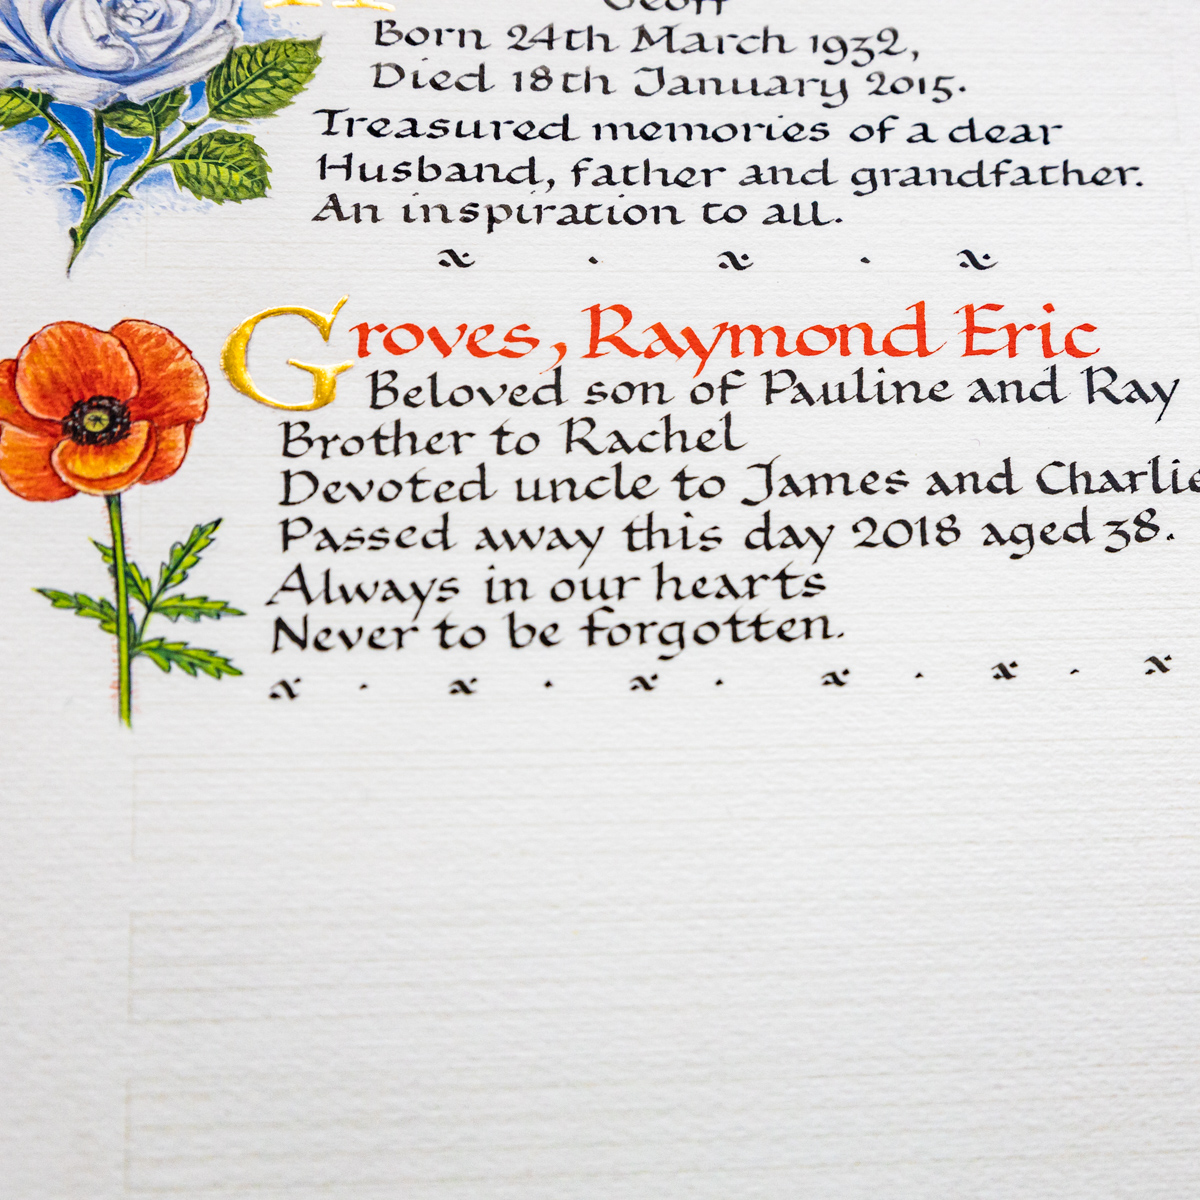 Geoff
Born 24th March 1932,
Died 18th January 2015.
Treasured memories of a dear
Husband, father and grandfather.
An inspiration to all.
Groves, Raymond Eric
Beloved son of Pauline and Ray
Brother to Rachel
Devoted uncle to James and Charlie
Passed away this day 2018 aged 38.
Always in our hearts
Never to be forgotten.